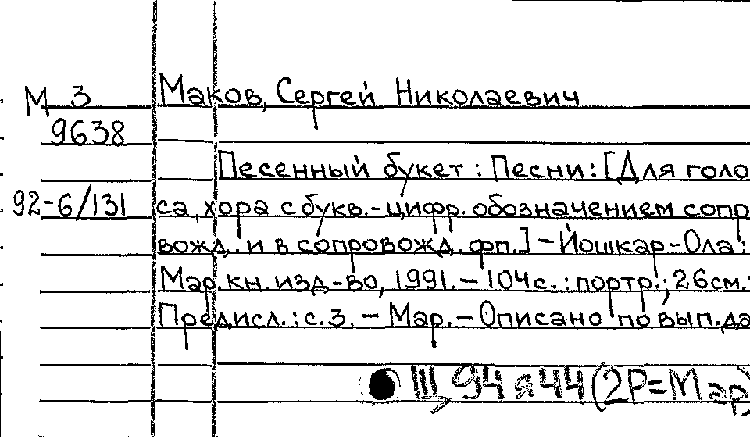 М 3 Маков, Сергей Николаевич
9638
Песенный букет : Песни : [Для голо
92-6/131 са, хора с букв.-цифр. обозначением сопр
вожд. и в сопровожд. фп.] - Йошкар-Ола :
Мар. кн. изд-во, 1991. - 104с. : портр. ; 26см.
Предисл. : с. 3. - Мар. - Описано по вып. да
Щ 94 я 44 (2Р=Мар)